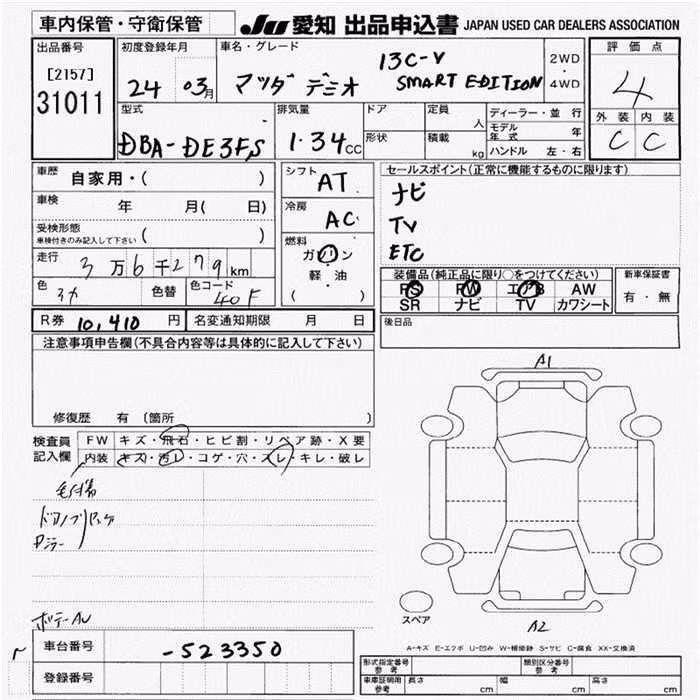 車内保管・守衛保管
JU 愛知 出品申込書 JAPAN USED CAR DEALERS ASSOCIATION
出品番号
[2157]
31011
初度登録年月
24 03月
車名・グレード
マツダ デミオ
13C-V
SMART EDITION
2WD
・
4WD
評価点
4
外装 内装
C C
型式
DBA-DE3FS
排気量
1.34CC
ドア
形状
定員
人
積載
kg
ディーラー・並行
モデル年式 年
ハンドル 左・右
車歴
自家用・( )
車検
年 月( 日)
受検形態
車検付きのみ記入して下さい ( )
走行
3万6千279km
色
色替
色コード
40F
シフト
AT
冷房
AC
燃料
ガソリン
・
軽・油
( )
セールスポイント(正常に機能するものに限ります)
ナビ
TV
ETC
装備品(純正品に限り○をつけてください)
PS PW エアB AW
SR ナビ TV カワシート
新車保証書
有・無
R券 10,410 円
名変通知期限 月 日
後日品
注意事項申告欄(不具合内容等は具体的に記入して下さい)
修復歴 有 〔箇所 〕
検査員
記入欄
FW キズ・飛石・ヒビ割・リペア跡・X要
内装 キズ・汚レ・コゲ・穴・スレ・キレ・破レ
A1
スペア
A2
A-キズ E-エクボ U-凹み W-補修跡 S-サビ C-腐食 XX-交換済
車台番号
-523350
登録番号
型式指定番号
参考
類別区分番号
参考
車庫証明用
参考
長さ cm
幅 cm
高さ cm